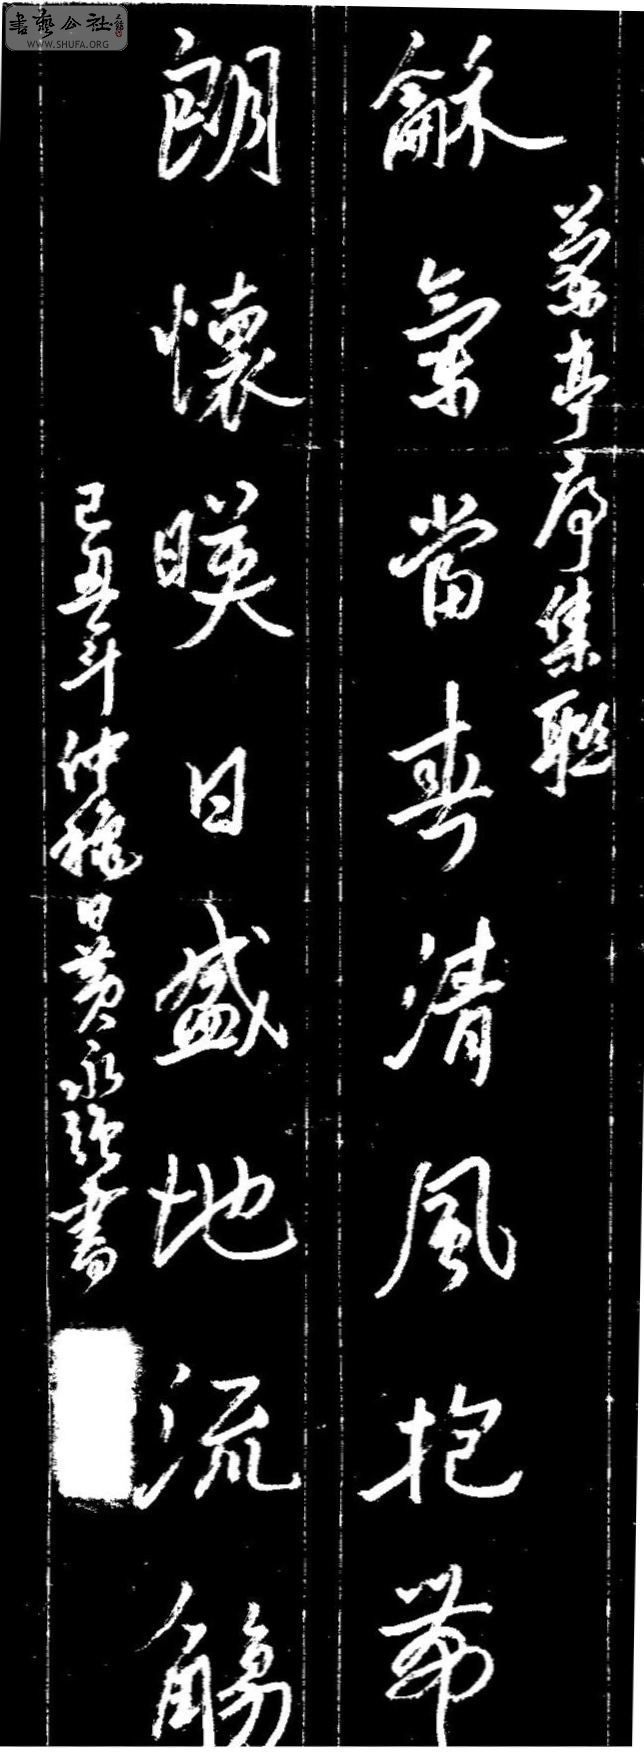 書藝公社
WWW.SHUFA.ORG
蘭亭序集聯
龢氣當春清風抱帶
朗懷暎日盛地流觴
己丑年仲穐日黃永強書